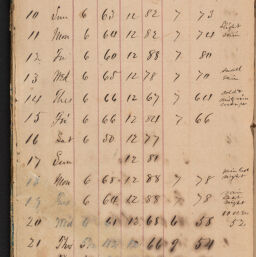 10 Sun 6 63 12 82 7 73
11 Mon 6 64 12 82 7 74 slight rain
12 Tu 6 60 12 88 7 80
13 Wed 6 65 12 78 7 70 small rain
14 Thu 6 66 12 67 7 64
15 Fri 6 66 12 84 7 66
16 Sat 6 50 12 77
17 Sun 12 81
18 Mon 6 68 12 88 7 78 night
19 6 64 12 88 7 78 rain last night
20 Wed 6 61 12 65 6 58
21 Thu 12 66 9 54